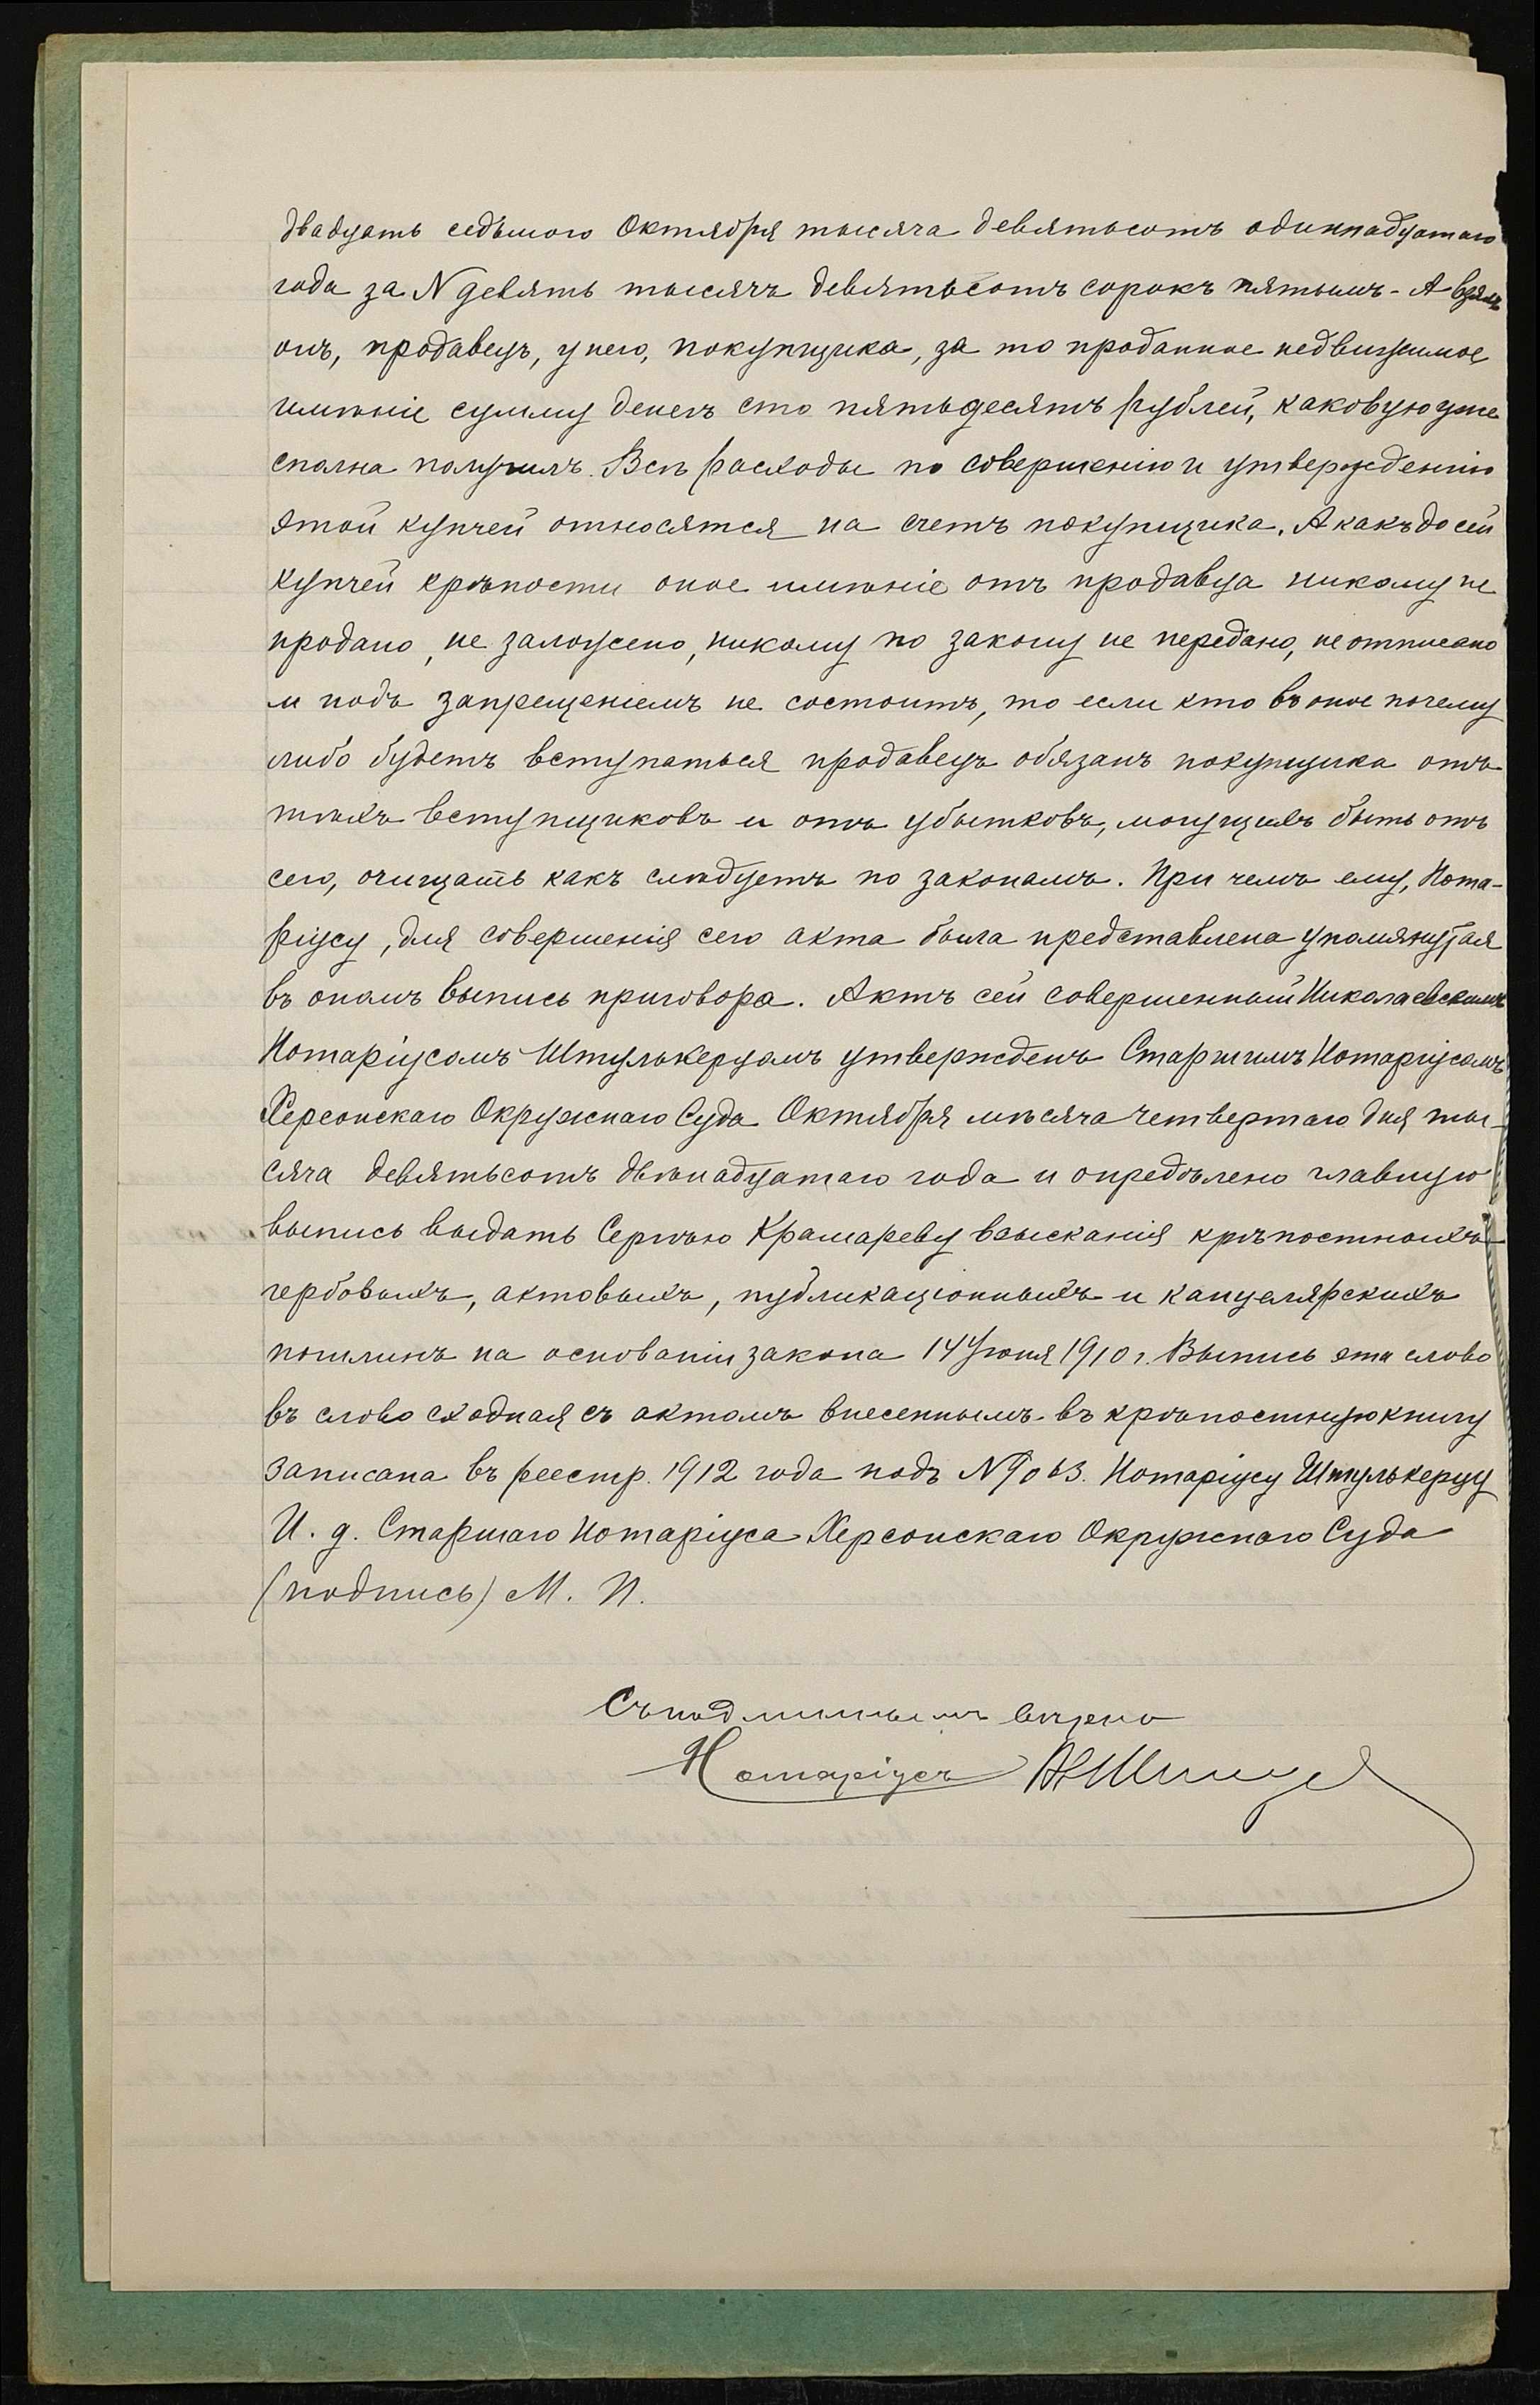 двадцать седьмого Октября тысяча девятьсотъ одиннадцатаго
года за N девять тысячъ девятьсотъ сорокъ пятымъ - А взялъ
онъ, продавецъ, у него, покупщика, за то проданное недвижимое
имѣніе сумму денегъ сто пятьдесятъ рублей, каковую уже
сполна получилъ. Всѣ расходы по совершенію и утвержденію
этой купчей относятся на счетъ покупщика. А какъ до сей
купчей крѣпости оное имѣніе отъ продавца никому не
продано, не заложено, никому по закону не передано, не отписано
и подъ запрещеніемъ не состоитъ, то если кто въ оное почему
либо будетъ вступаться продавецъ обязанъ покупщика отъ
тѣхъ вступщиковъ и отъ убытковъ, могущихъ быть отъ
сего, очищать какъ слѣдуетъ по законамъ. При чемъ ему, Нота-
ріусу, для совершенія сего акта была представлена упомянутая
въ ономъ выпись приговора. Актъ сей совершенный Николаевскимъ
Нотаріусомъ Штулькерцомъ утвержденъ Старшимъ Нотаріусомъ
Херсонскаго Окружнаго Суда Октября мѣсяца четвертаго дня ты-
сяча девятьсотъ двѣнадцатаго года и опредѣлено главную
выпись выдать Сергѣю Крамареву взысканія крѣпостныхъ
гербовыхъ, актовыхъ, публикаціонныхъ и канцелярскихъ
пошлинъ на основаніи закона 14 Іюня 1910 г. Выпись эта слово
въ слово сходная съ актомъ внесеннымъ въ крѣпостную книгу
записана въ реестр. 1912 года подъ N 9063. Нотаріусу Штулькерцу
И. д. Старшаго Нотаріуса Херсонскаго Окружнаго Суда
(подпись) М. П.
Съ подлиннымъ вѣрно
Нотаріусъ